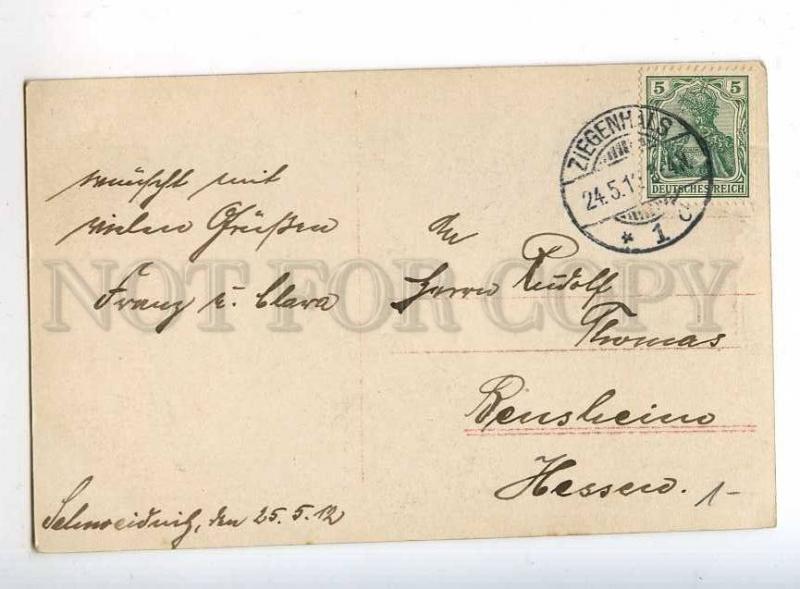 wünscht mit
vielen Grüßen
Franz u. Clara
Schweidnitz, den 25.5.12
5 5
DEUTSCHES REICH
ZIEGENHALS
24.5.12
* 1 c
An
Herrn Rudolf
Thomas
Bensheim
Hessen.
1-
NOT FOR COPY